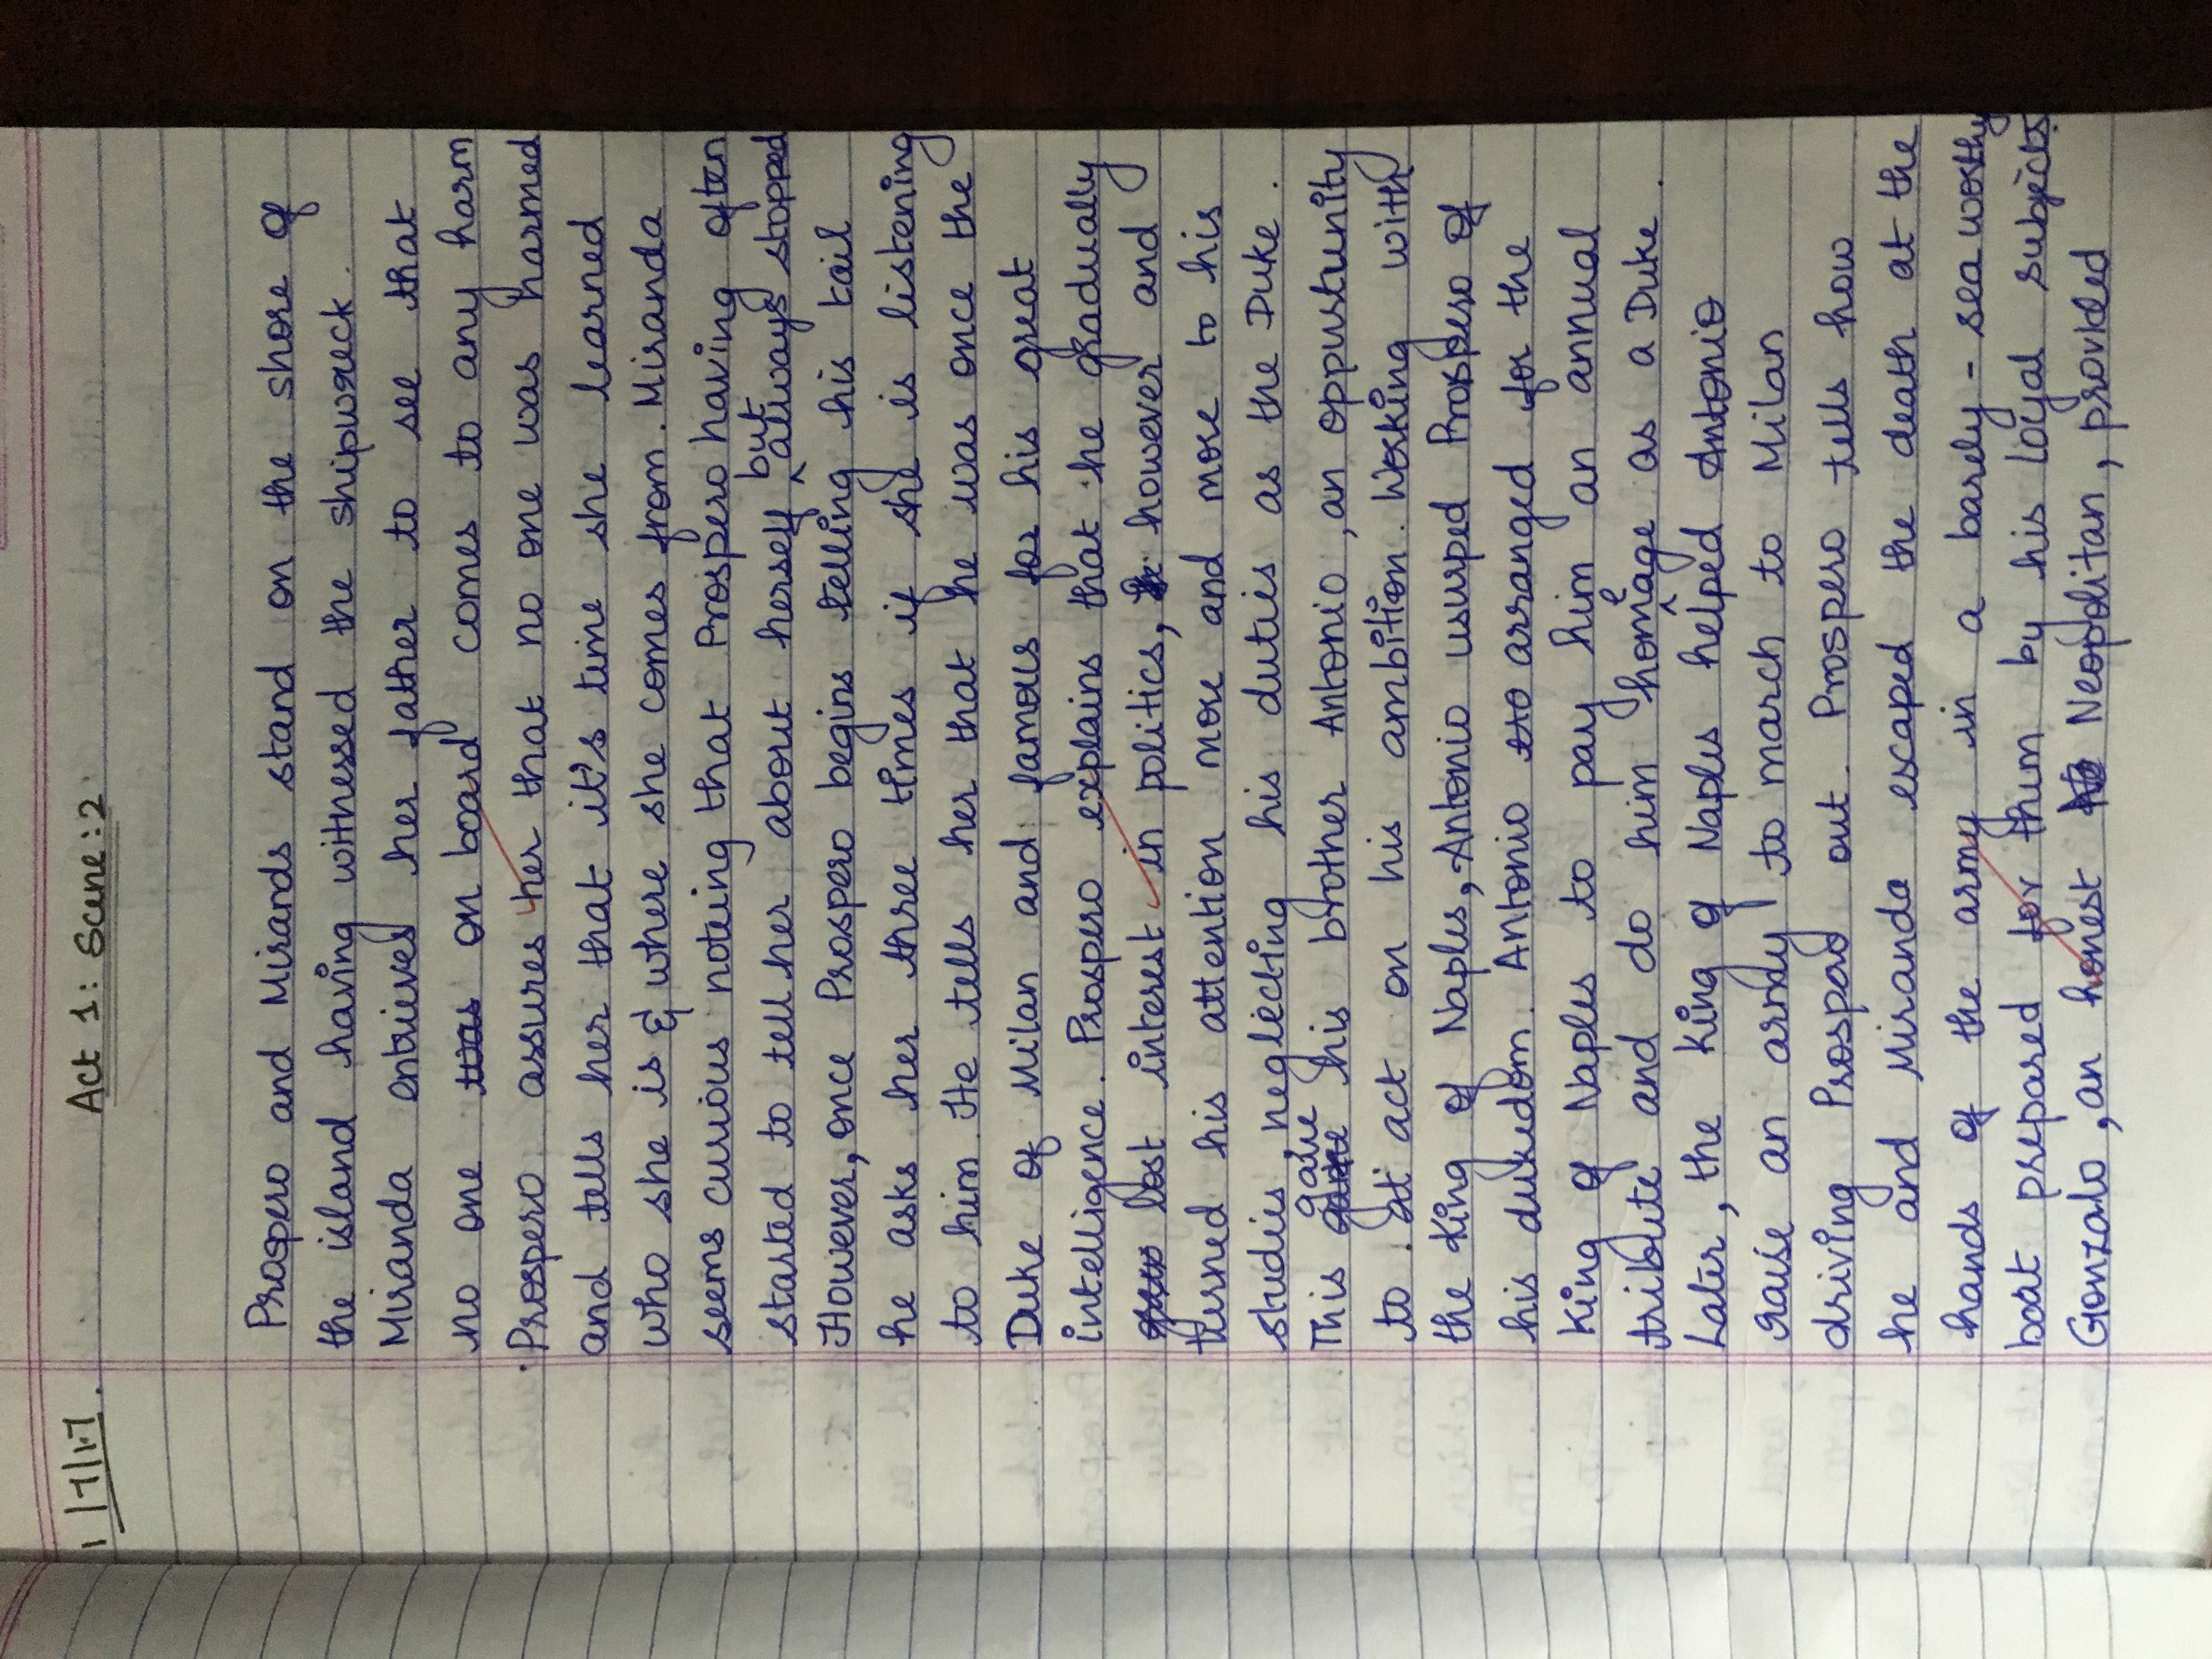 1/7/17.
Act 1: Scene:2
Prospero and Mirands stand on the shore of
the island having witnessed the shipwreck.
Miranda entrieves her father to see that
no one was on board comes to any harm
Prospero assures her that no one was harmed
and tells her that it's time she learned
who she is & where she comes from. Miranda
seems curious noteing that Prospero having often
started to tell her about herself but always stopped
However, once Prospero begins telling his tail
he asks her three times if she is listening
to him. He tells her that he was once the
Duke of Milan and famous for his great
intelligence. Prospero explains that he gradually
grew lost interest in politics, however and
turned his attention more and more to his
studies, neglecting his duties as the Duke.
This gave his brother Antonio, an oppurtunity
to at act on his ambition. Working with
the King of Naples, Antonio usurped Prospero of
his dukedom. Antonio arranged for the
King of Naples to pay him an annual
tribute and do him homeage as a Duke.
Later, the King of Naples helped Antonio
raise an army to march to Milan
driving Prospero out. Prospero tells how
he and Miranda escaped the death at the
hands of the army in a barely - sea worthy
boat prepared for them by his loyal subjects.
Gonzalo, an honest Neopolitan, provided